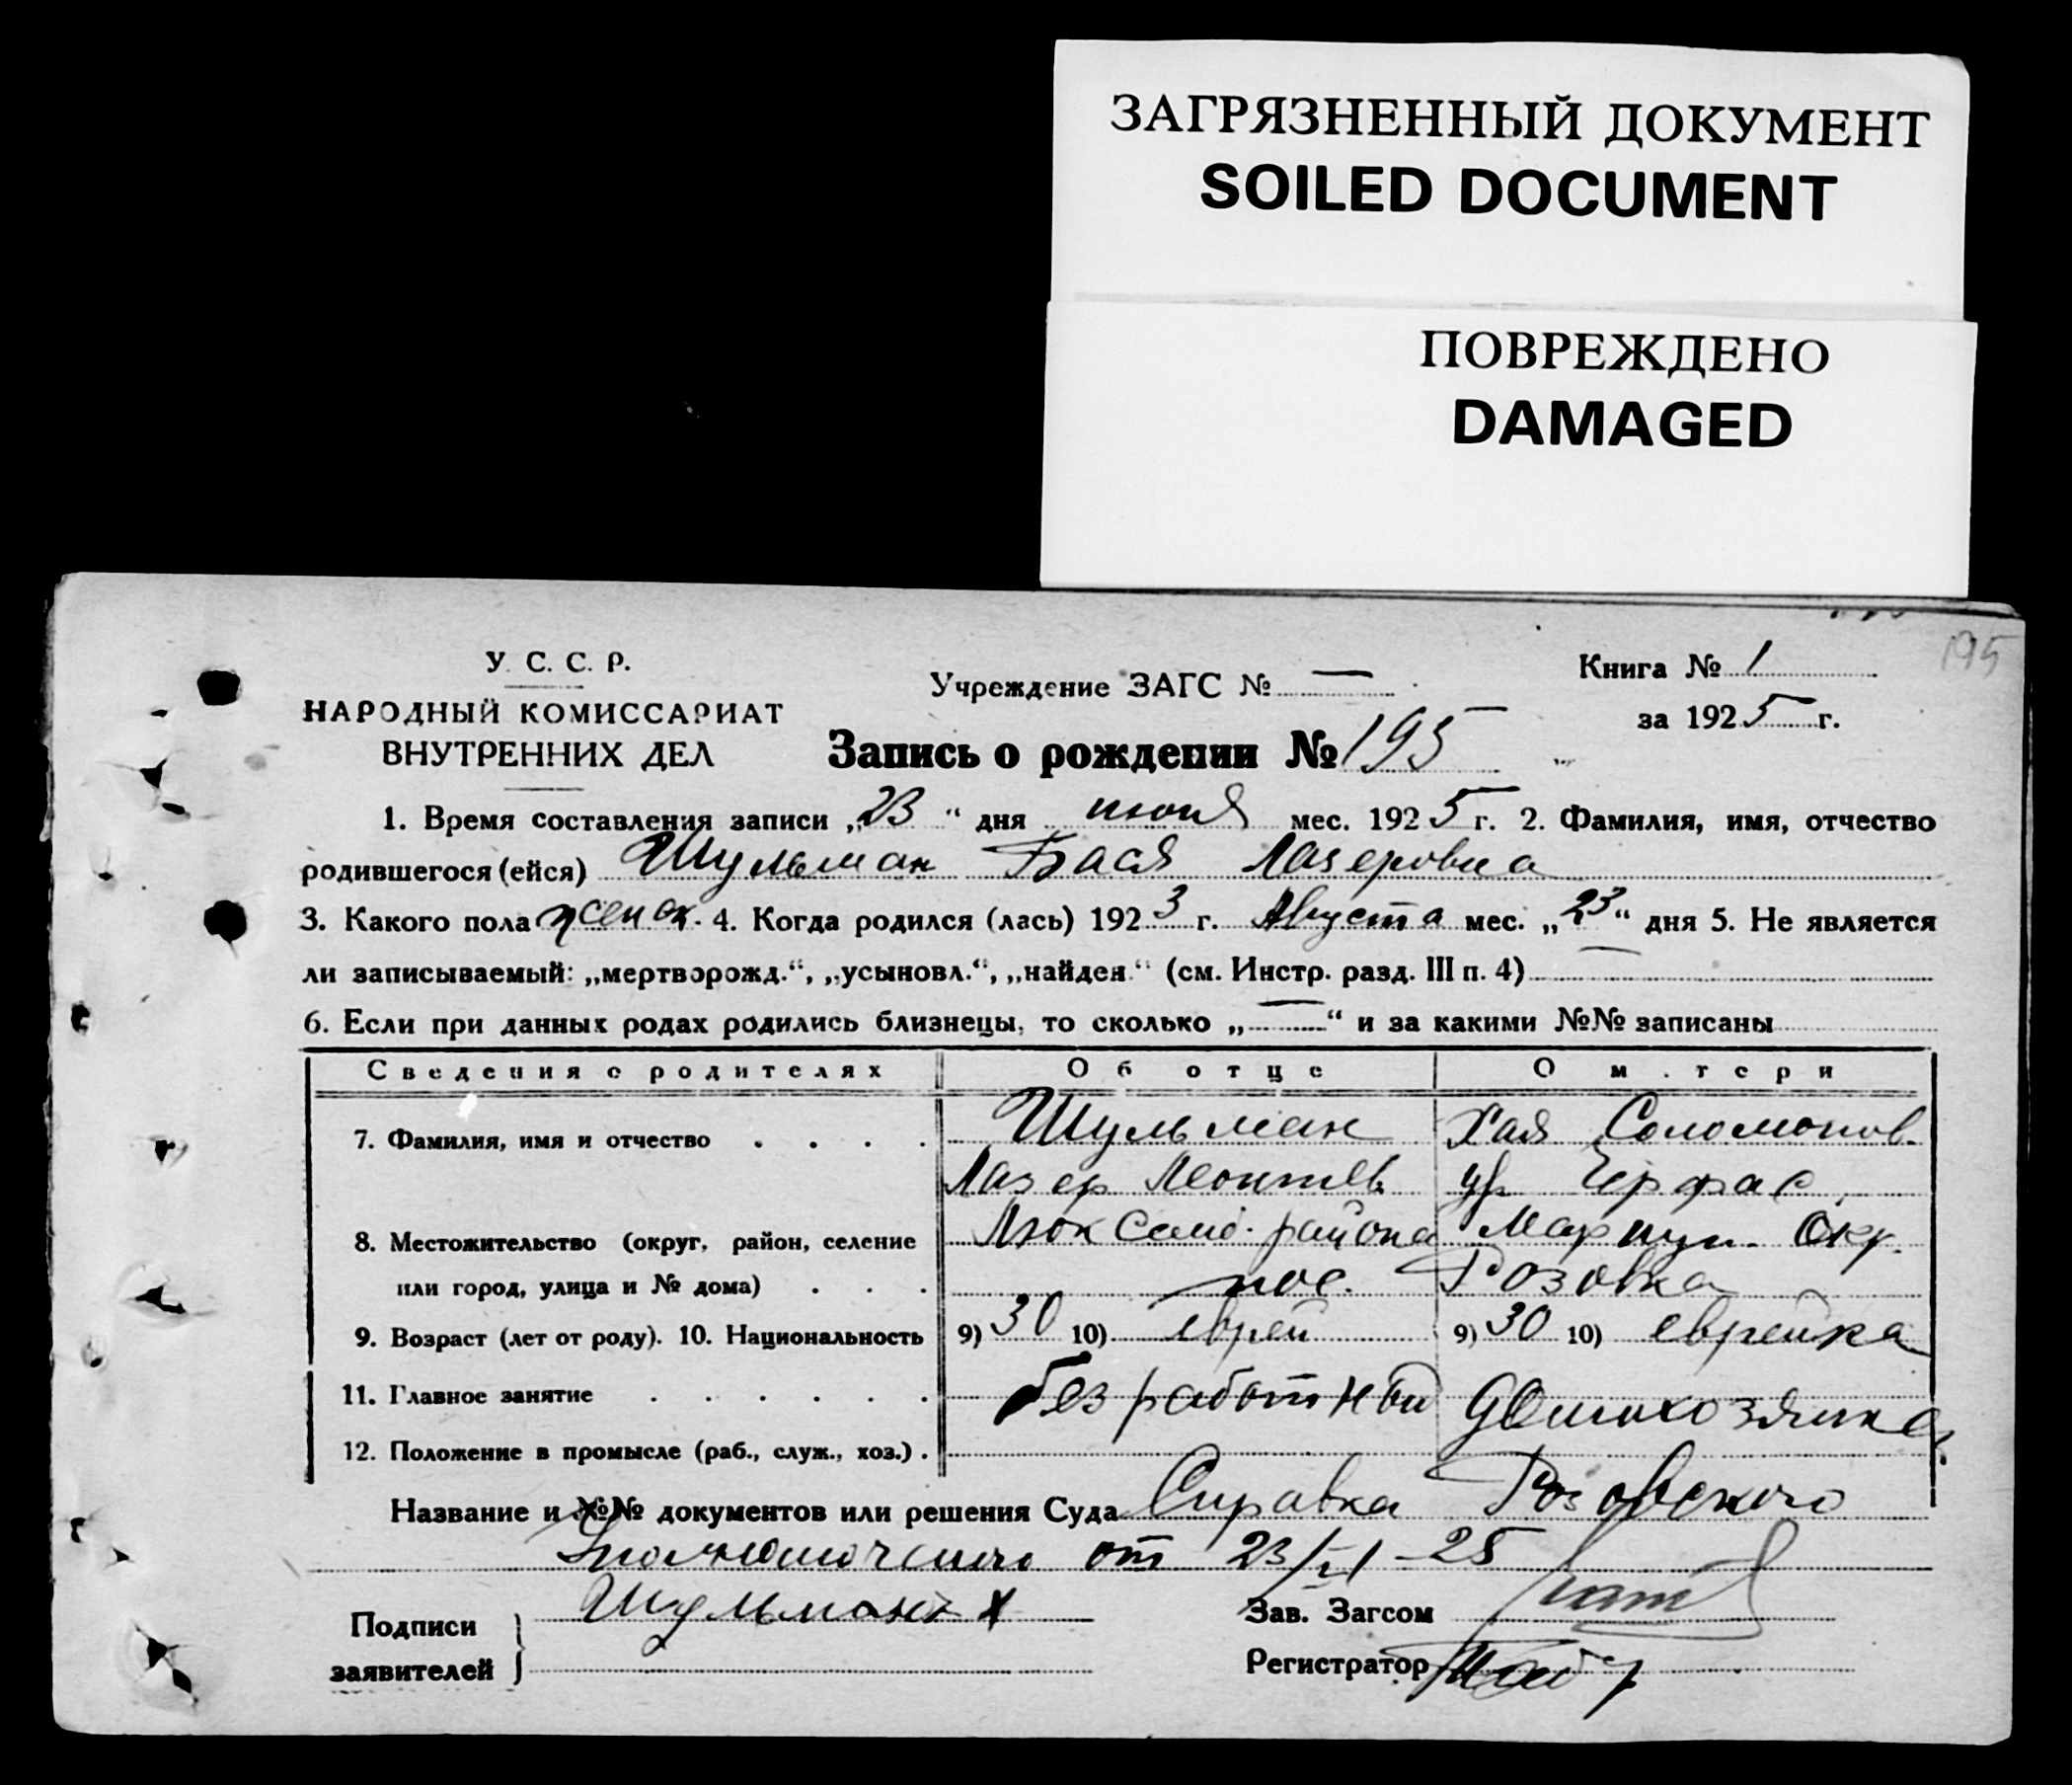 ЗАГРЯЗНЕННЫЙ ДОКУМЕНТ
SOILED DOCUMENT
ПОВРЕЖДЕНО
DAMAGED
195
У. С. С. Р.
НАРОДНЫЙ КОМИССАРИАТ
ВНУТРЕННИХ ДЕЛ
Учреждение ЗАГС № —
Книга № 1
за 1925 г.
Запись о рождении № 195
1. Время составления записи „23“ дня июня мес. 1925 г. 2. Фамилия, имя, отчество
родившегося (ейся) Шульман Бася Лазеровна
3. Какого пола женск. 4. Когда родился (лась) 1923 г. Августа мес. „23“ дня 5. Не является
ли записываемый: „мертворожд.“, „усыновл.“, „найден.“ (см. Инстр. разд. III п. 4) —
6. Если при данных родах родились близнецы, то сколько „—“ и за какими №№ записаны
Сведения о родителях Об отце О м.тери
7. Фамилия, имя и отчество . . . . Шульман Хая Соломонов.
Лазер Леонтьев ур Черфас
8. Местожительство (округ, район, селение Люксемб. района Мариуп. Окр.
или город, улица и № дома) . . . пос. Розовка
9. Возраст (лет от роду). 10. Национальность 9) 30 10) еврей 9) 30 10) еврейка
11. Главное занятие . . . . . . безработный домохозяйка
12. Положение в промысле (раб., служ., хоз.) .
Название и №№ документов или решения Суда Справка Розовского
от 23/VI – 25
Подписи заявителей } Шульман Х
Зав. Загсом
Регистратор